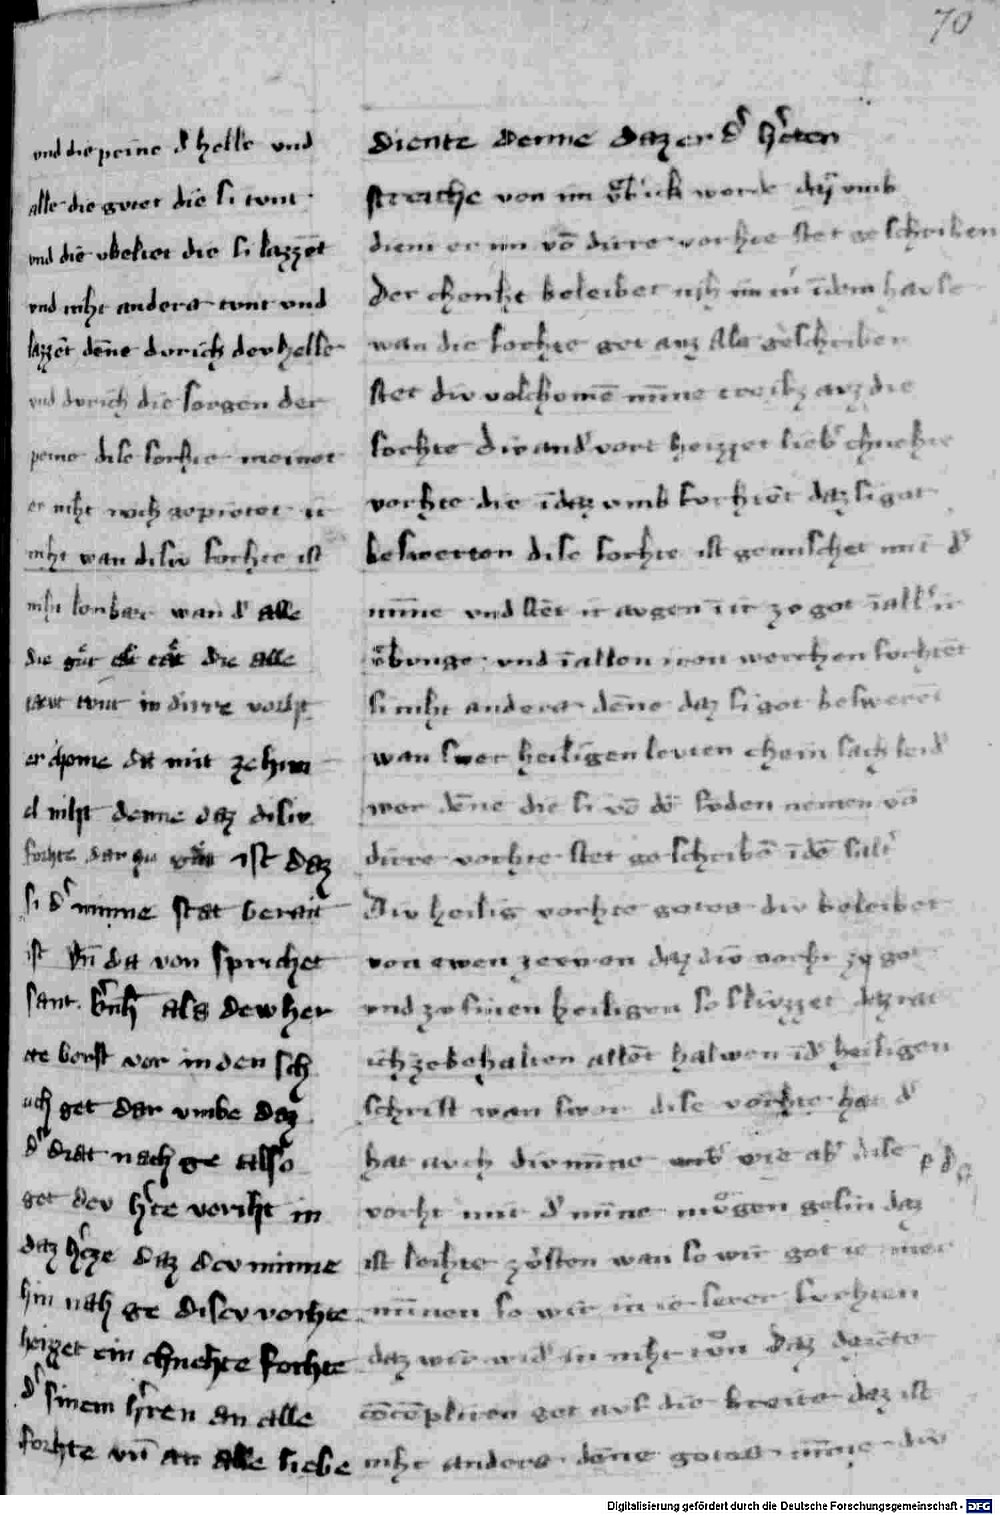 70
und die peine d helle und
alle die gvtet die si tvnt
vnd die vbeltet die si lazzēt
vnd niht anders tvnt vnd
lazzēt dēne dvrich dev helle
vnd dvrich die sorgen der
peine dise forhte meinet
er niht noch gepivtet ir
niht wan disiv forhte ist
niht lonber wan d alle
die alle
tvnt in dirre vorht
er chome da mit ze himi
el niht denne daz disiv
forhte dar zu ist daz
si d minne stat berait
ist vn da von sprichet
sant als dew her
te borst vor in den sch
uch get dar vmbe daz
d drat nach ge also
get dev hte voriht in
daz hze daz dev minne
hin nah ge disev vorhte
heizzet ein chnehte forhte
d sinem hren an alle
forhte vn an alle liebe
diente denne daz er d herten
streiche von im vbich werde daz vmb
diem er im vō dirre vorhte stet geschriben
Der chneht beleibet niht in dem havse
wan die forhte get avz Als geschriben
stet div volchomē minne treibz avz die
forhte div and vort heizzet lieb chnehte
vorhte die idaz vmb furhtēt daz si got
beswerten dise forhte ist gemischet mit d
minne vnd stēt ir avgen ī ir ze got ī all ir
vbvnge vnd ī allen iren werchen forhtēt
si niht anders dēne daz si got beswerēt
wan swer heiligen levten chein sach leid
wer dēne die si vō dē svnden nemen vō
dirre vorhte stet geschribē ī dē salt
Div heilig vorhte gotes div beleibet
von ewen ze ewen daz div vorht ze got
vnd ze sinen heiligen so slivzzet daz rat
ich ze behalten allēt halwen ī d heiligen
schrift wan swer dise vorhte hat d
hat avch div minne wie ab dise
vorht mit d minne mvgen gesin daz
ist leihte ze losten wan so wir got ie mer
minnen so wir in ie serer furhten
daz wir wid in niht tvn daz
got avf die breite daz ist
niht anders dēne gotes minne div
Digitalisierung gefördert durch die Deutsche Forschungsgemeinschaft - DFG